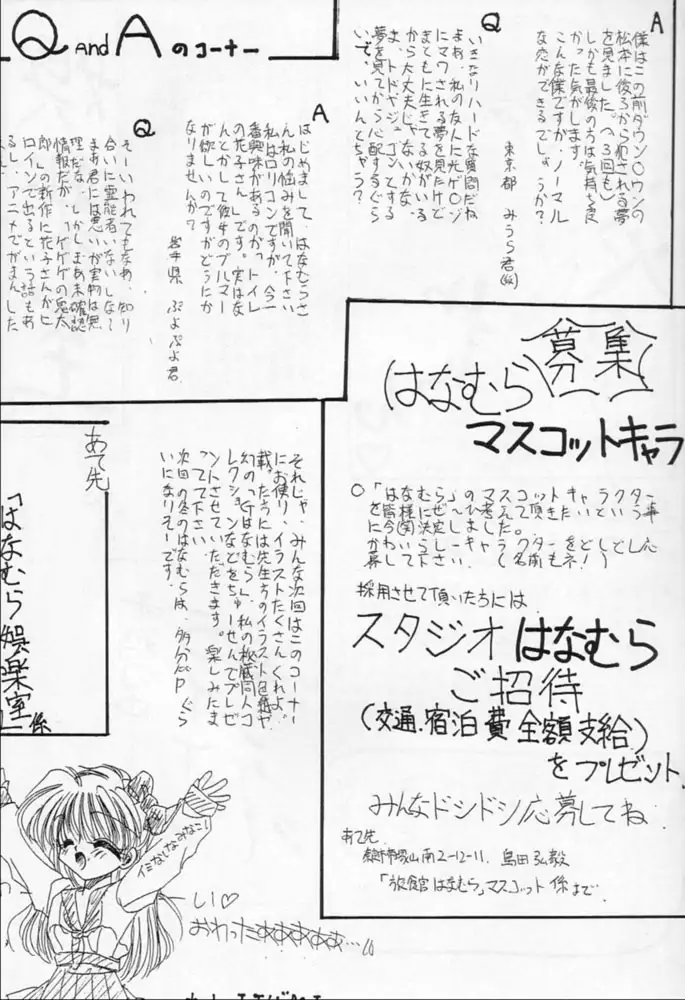 Q AND A のコーナー
A
僕はこの前ダウン○ウンの
松本に後ろから犯される夢
を見ました。(へ3回も)
しかも最後の方は気持ち良
かった気がします。
こんな僕ですか、ノーマル
な恋ができるでしょうか?
東京都 みうら君(仮)
Q
いきなりハードな質問だね
よぉ、私の友人に光ゲ○ジ
にマワされる夢を見たけど
まともに生きてる奴がいる
から大丈夫じゃないかな。
ま、トドやジュゴンとする
夢を見てから心配するぐら
いで、いいんとちゃう?
A
はじめまして、はなむらさ
ん私の悩みを聞いて下さい
私はロリコンですが、今一
番興味があるのがトイレ
の花子さんです。実はな
んとかして彼女のブルマー
が欲しいのですがどうにか
なりませんか?
岩手県 ぷよぷよ君
Q
そーいわれてもなぁ、知り
合いに霊能者いないしなぁ
まあ君には悪いが実物は無
理だな、しかしまあ未確認
情報だが、「ゲゲゲの鬼太
郎」の新作に花子さんがヒ
ロインで出るという話もあ
るし、アニメでがまんした
募集
はなむら
マスコットキャラ
○「はなむら」のマスコットキャラクター
を皆様に考えて頂きたいという事
に今(笑)決定しました。
かわいらしーキャラクターをどしどし応
募して下さい。(名前もネ!)
採用させて頂いた方には
スタジオはなむら
ご招待
(交通.宿泊費全額支給)
をプレゼント.
みんなドシドシ応募してね.
あて先
南2-12-11. 島田 弘毅
「放館はなむら」マスコット係まで
それじゃ、みんな次回はこのコーナー
にお便り、イラストたくさんくれよ。
載った方には先生方のイラスト色紙や
幻の「Gはなむら」、私の秘蔵同人コ
レクションなどをちゅーせんでプレゼ
ントさせていただきます。楽しみにま
ってて下さい
次回の冬のはなむらは、多分60Pぐら
いになりそーです。
あて先
「はなむら娯楽室」係
イミなしなみなこ!
し1♡
おわったああああぁ…